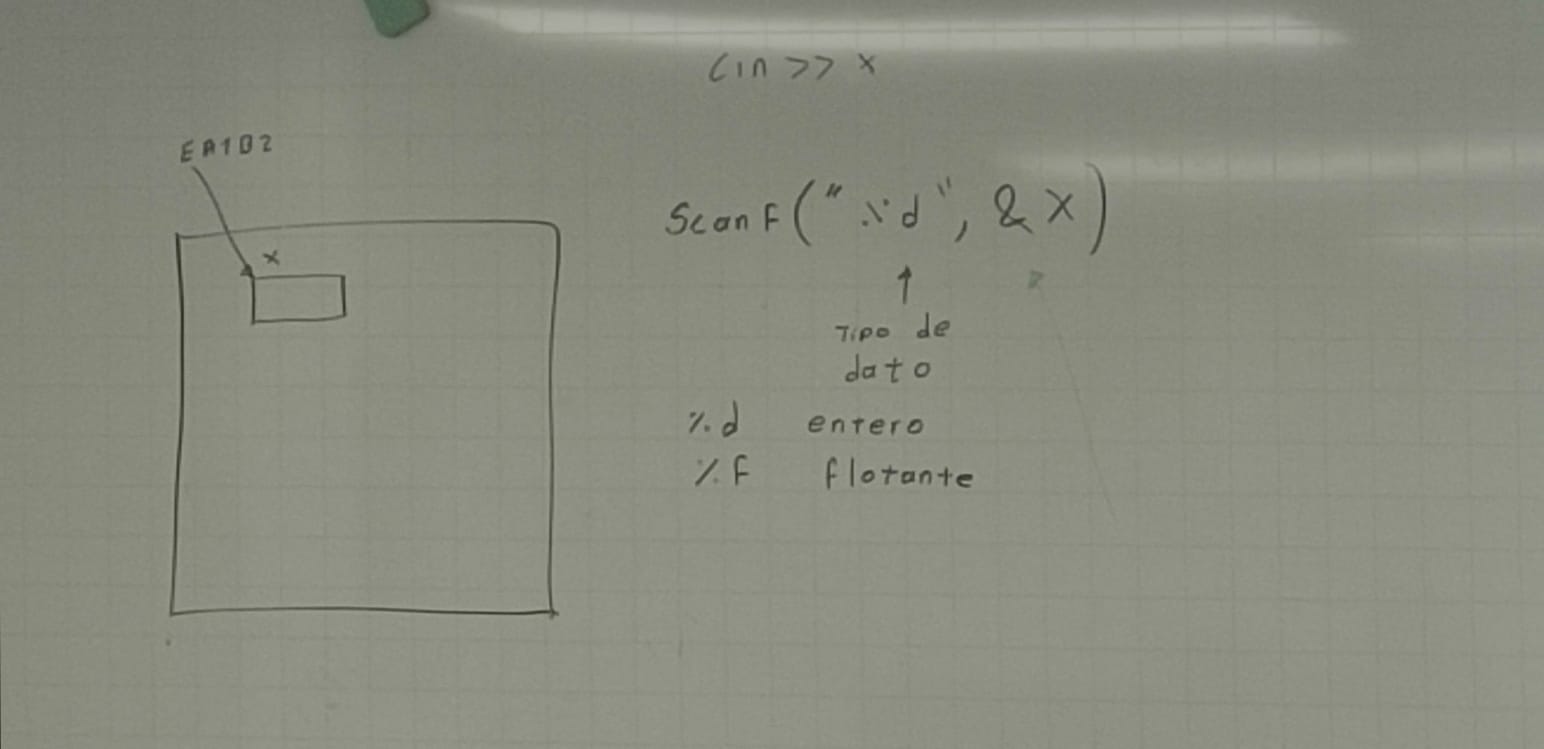 Cin >> x
EA102
x
Scanf("%d", & x)
Tipo de
dato
%d entero
%f flotante